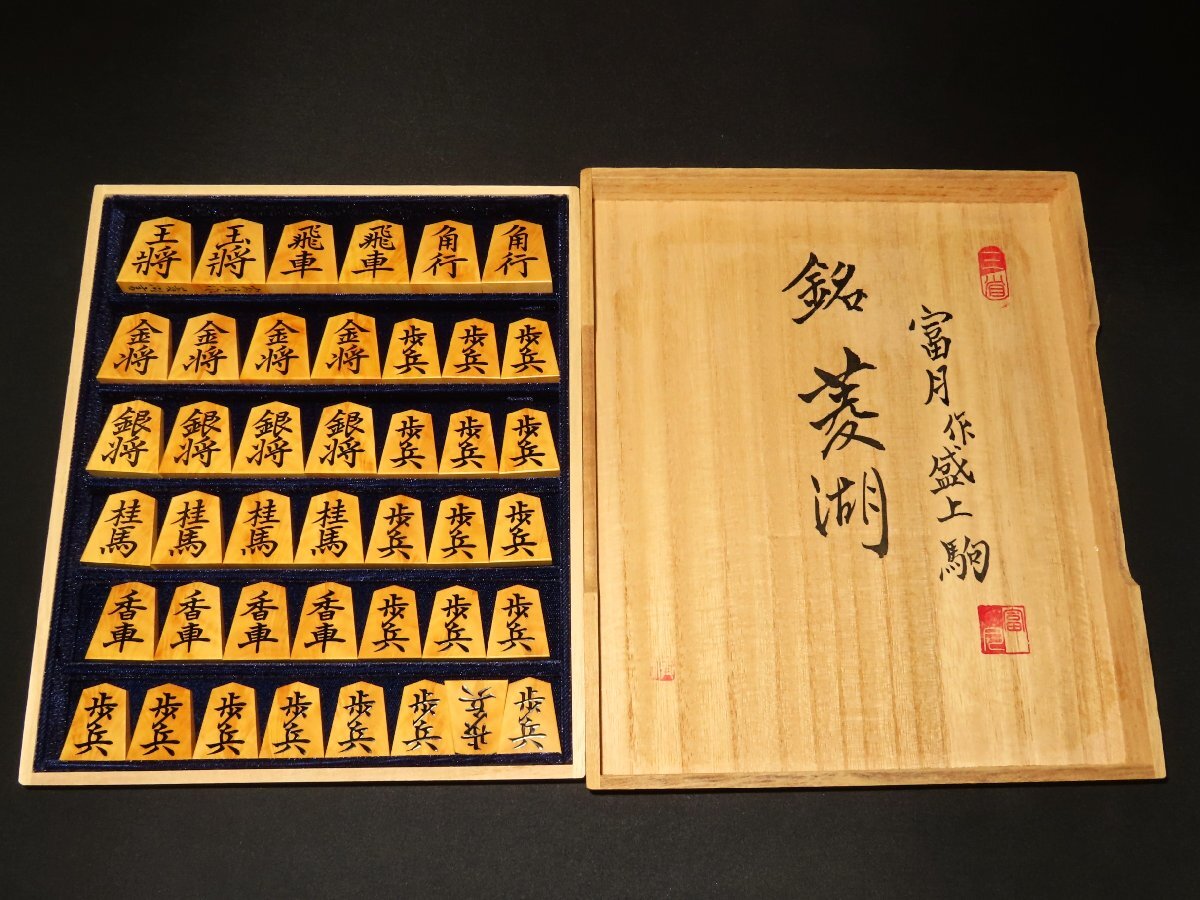 王将 玉将 飛車 飛車 角行 角行
金将 金将 金将 金将 歩兵 歩兵 歩兵
銀将 銀将 銀将 銀将 歩兵 歩兵 歩兵
桂馬 桂馬 桂馬 桂馬 歩兵 歩兵 歩兵
香車 香車 香車 香車 歩兵 歩兵 歩兵
歩兵 歩兵 歩兵 歩兵 歩兵 歩兵 歩兵 歩兵
富月作盛上駒
銘 菱湖